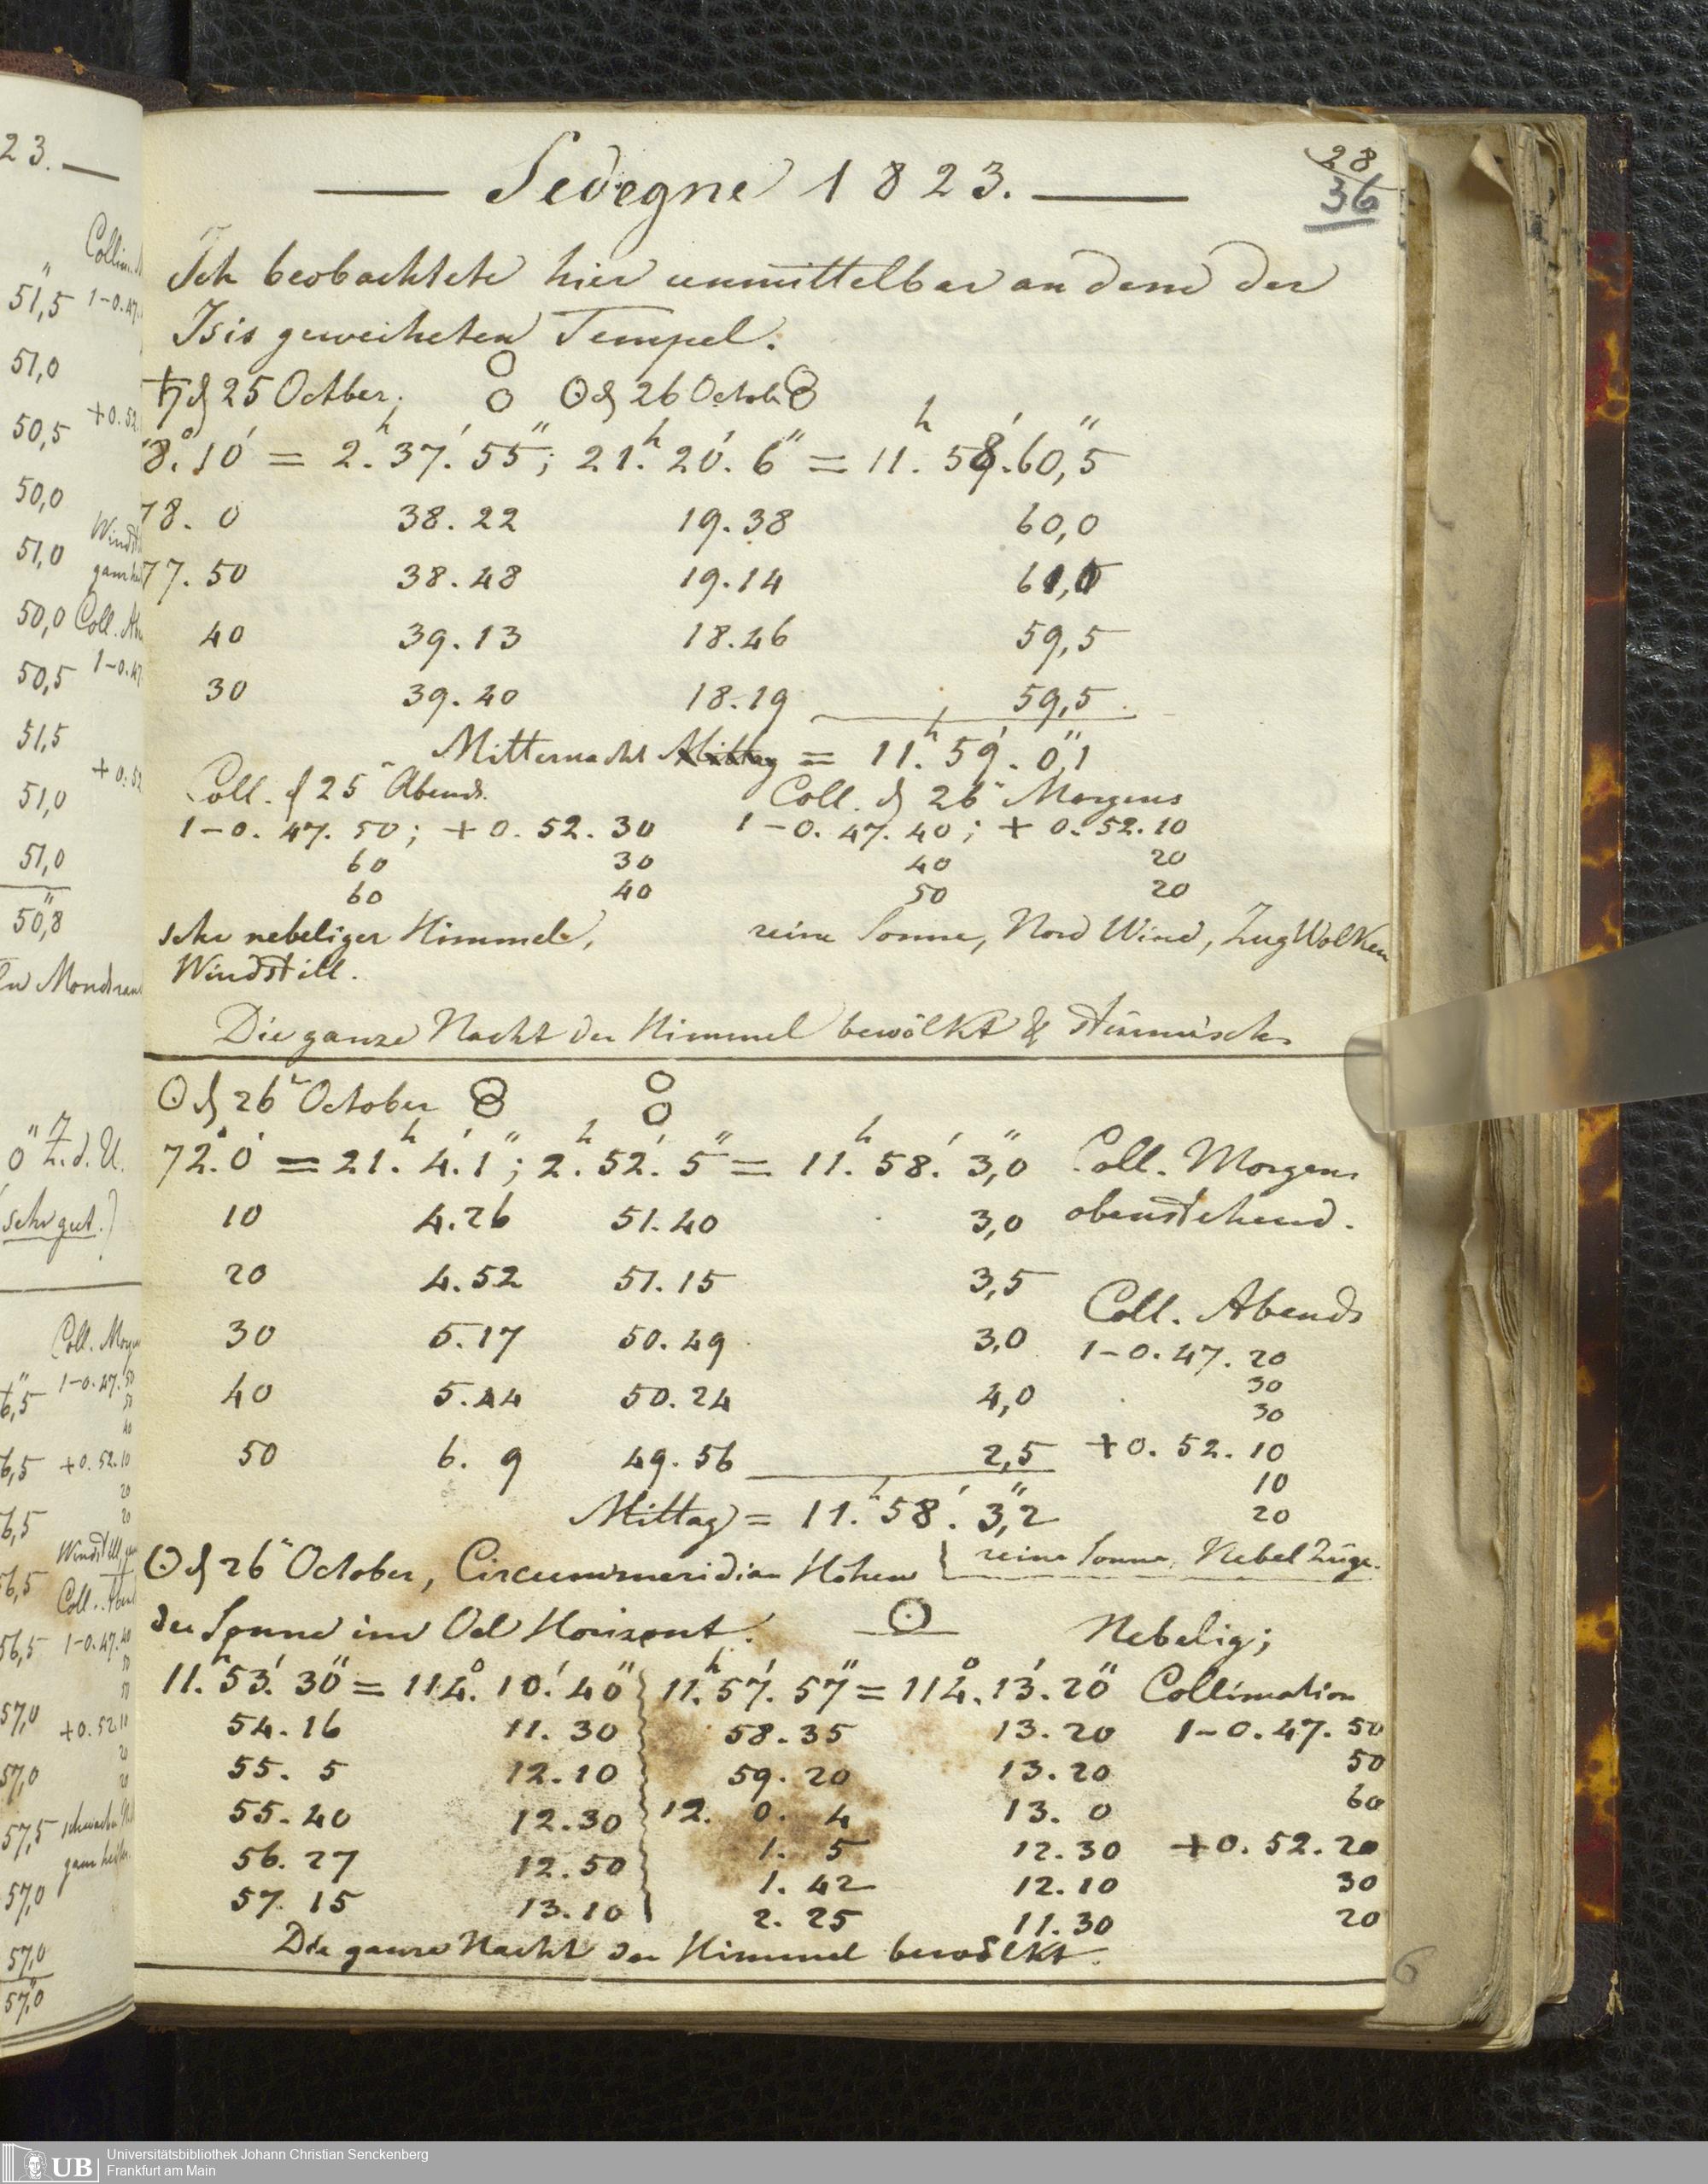 Sedegne 1823.
28
36
Ich beobachtete hier unmittelbar an dem der
Isis geweiheten Tempel.
♄ d 25 Octber; ☉ d 26 Octob.
78.° 10' = 2.h 37.' 55"; 21.h 20.' 6" = 11.h 58.' 60,"5
78. 0 38.22 19.38 60,0
77.50 38.48 19.14 61,0
40 39.13 18.46 59,5
30 39.40 18.19 59,5
Mitternacht Mittag = 11.h 59.' 0,"1
Coll. d 25 Abends. Coll. d 26 Morgens
1-0.47.50; +0.52.30 1-0.47.40; +0.52.10
60 30 40 20
60 40 50 20
sehr nebeliger Himmel, reine Sonne, Nord Wind, Zug Wolken
Windstill.
Die ganze Nacht der Himmel bewölkt & stürmisch
☉ d 26 October
72.° 0' = 21.h 4.' 1"; 2.h 52.' 5" = 11.h 58.' 3,"0 Coll. Morgens
10 4.26 51.40 3,0 obenstehend.
20 4.52 51.15 3,5
Coll. Abends
30 5.17 50.49 3,0 1-0.47.20
30
40 5.44 50.24 4,0 30
50 6. 9 49.56 2,5 +0.52.10
10
Mittag = 11.h 58.' 3,"2 20
☉ d 26 October, Circummeridian Höhen { reine Sonne, Nebel Züge.
der Sonne im Oel Horizont. ☉ Nebelig;
11.h 53.' 30" = 114.° 10.' 40" 11.h 57.' 57" = 114.° 13.' 20" Collimation
54.16 11.30 58.35 13.20 1-0.47.50
55. 5 12.10 59.20 13.20 50
55.40 12.30 12. 0. 4 13. 0 60
56.27 12.50 1. 5 12.30 +0.52.20
57.15 13.10 1.42 12.10 30
2.25 11.30 20
Die ganze Nacht der Himmel bewölkt.
6
23.
51,5 1-0.47
51,0
50,5 +0.52
50,0
51,0
50,0 Coll.
50,5 1-0.47
51,5
51,0
51,0
50,"8
sehr gut.)
Coll.
6,5 1-0.47.50
6,5 +0.52.10
6,5
56,5 Coll.
56,5 1-0.47.40
57,0 +0.52.10
57,0
57,5
57,0
57,0
57,0
UB
Universitätsbibliothek Johann Christian Senckenberg
Frankfurt am Main